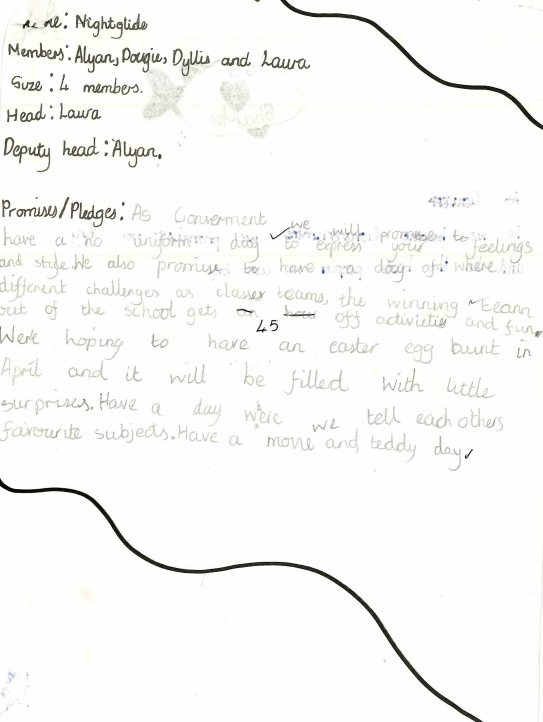 Nightglide
Members: Alyan, Dougie, Dyllis and Laura
Size: 4 members.
Head: Laura
Deputy head: Alyan.
Promises/Pledges: As Goverment we will promise to
have a no uniform day to express your feelings
and style. We also promise to have a day off where
different challenges as classes teams, the winning team
out of the school gets 45 off activities and fun.
Were hoping to have an easter egg hunt in
April and it will be filled with little
surprises. Have a day where we tell each others
favourite subjects. Have a movie and teddy day